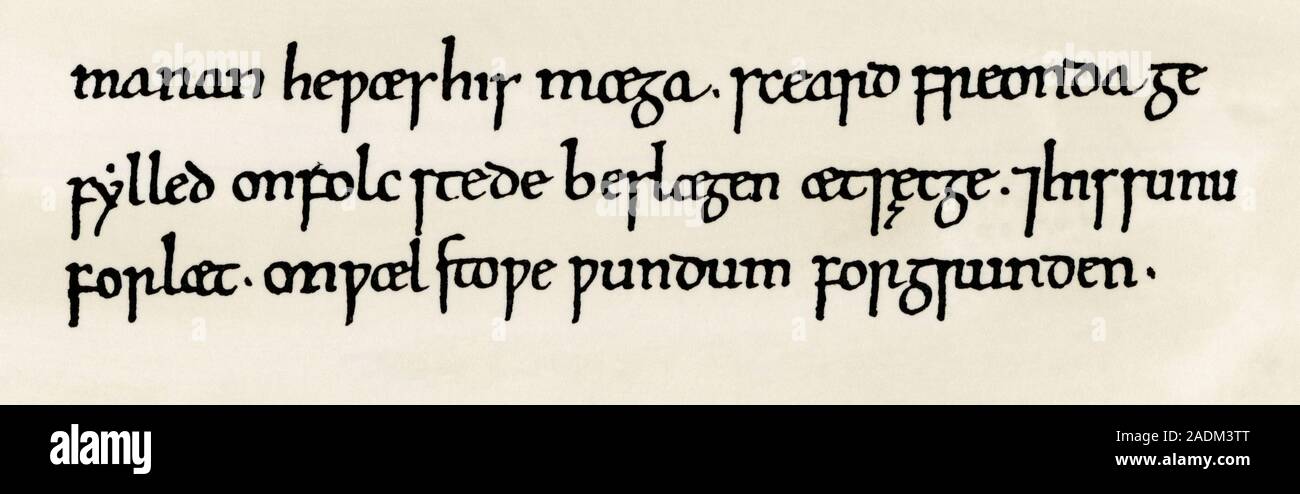 manan heƿæs his mæga. sceard freonda ge
fẏlled onfolc stede beslægen ætsęcge. ⁊his sunu
forlæt. onƿæl stoƿe ƿundum forgrunden.
alamy
Image ID: 2ADM3TT
www.alamy.com